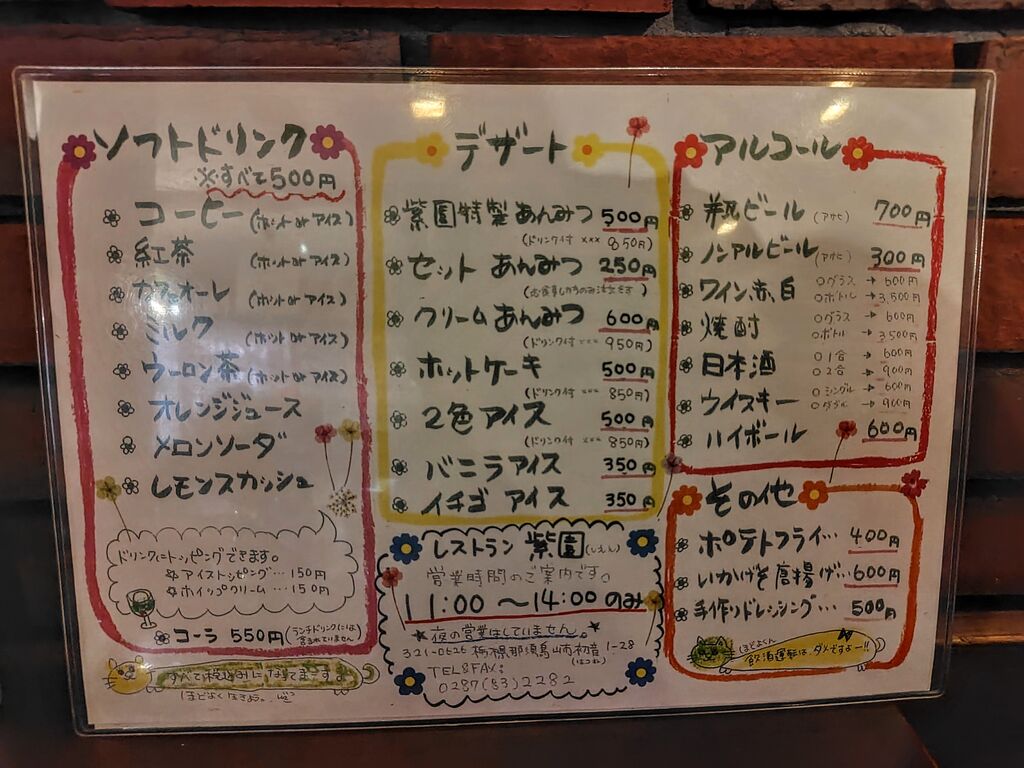 ソフトドリンク
※すべて500円
コーヒー (ホット or アイス)
紅茶 (ホット or アイス)
カフェオーレ (ホット or アイス)
ミルク (ホット or アイス)
ウーロン茶 (ホット or アイス)
オレンジジュース
メロンソーダ
レモンスカッシュ
ドリンクにトッピングできます。
アイストッピング…150円
ホイップクリーム…150円
コーラ 550円 (ランチドリンクには含まれていません)
すべて税込みになってまーすよ
デザート
紫園特製あんみつ 500円
(ドリンク付 ××× 850円)
セット あんみつ 250円
クリームあんみつ 600円
(ドリンク付 ××× 950円)
ホットケーキ 500円
(ドリンク付 ××× 850円)
2色アイス 500円
(ドリンク付 ××× 850円)
バニラアイス 350円
イチゴ アイス 350円
レストラン 紫園(しえん)
営業時間のご案内です。
11:00 〜14:00 のみ
★夜の営業はしていません。★
321-0626 栃木県那須烏山市初音 1-28
(はつね)
TEL&FAX:
0287(83)2282
アルコール
ビール (アサヒ) 700円
ノンアルビール (アサヒ) 300円
ワイン赤、白 ○グラス → 600円
○ボトル → 3,500円
焼酎 ○グラス → 600円
○ボトル → 3500円
日本酒 ○1合 → 600円
○2合 → 900円
ウイスキー ○シングル → 600円
○ダブル → 900円
ハイボール 600円
その他
ポテトフライ… 400円
いかげそ唐揚げ…600円
手作りドレッシング… 500円
ほどよくん
飲酒運転は、ダメですよー!!